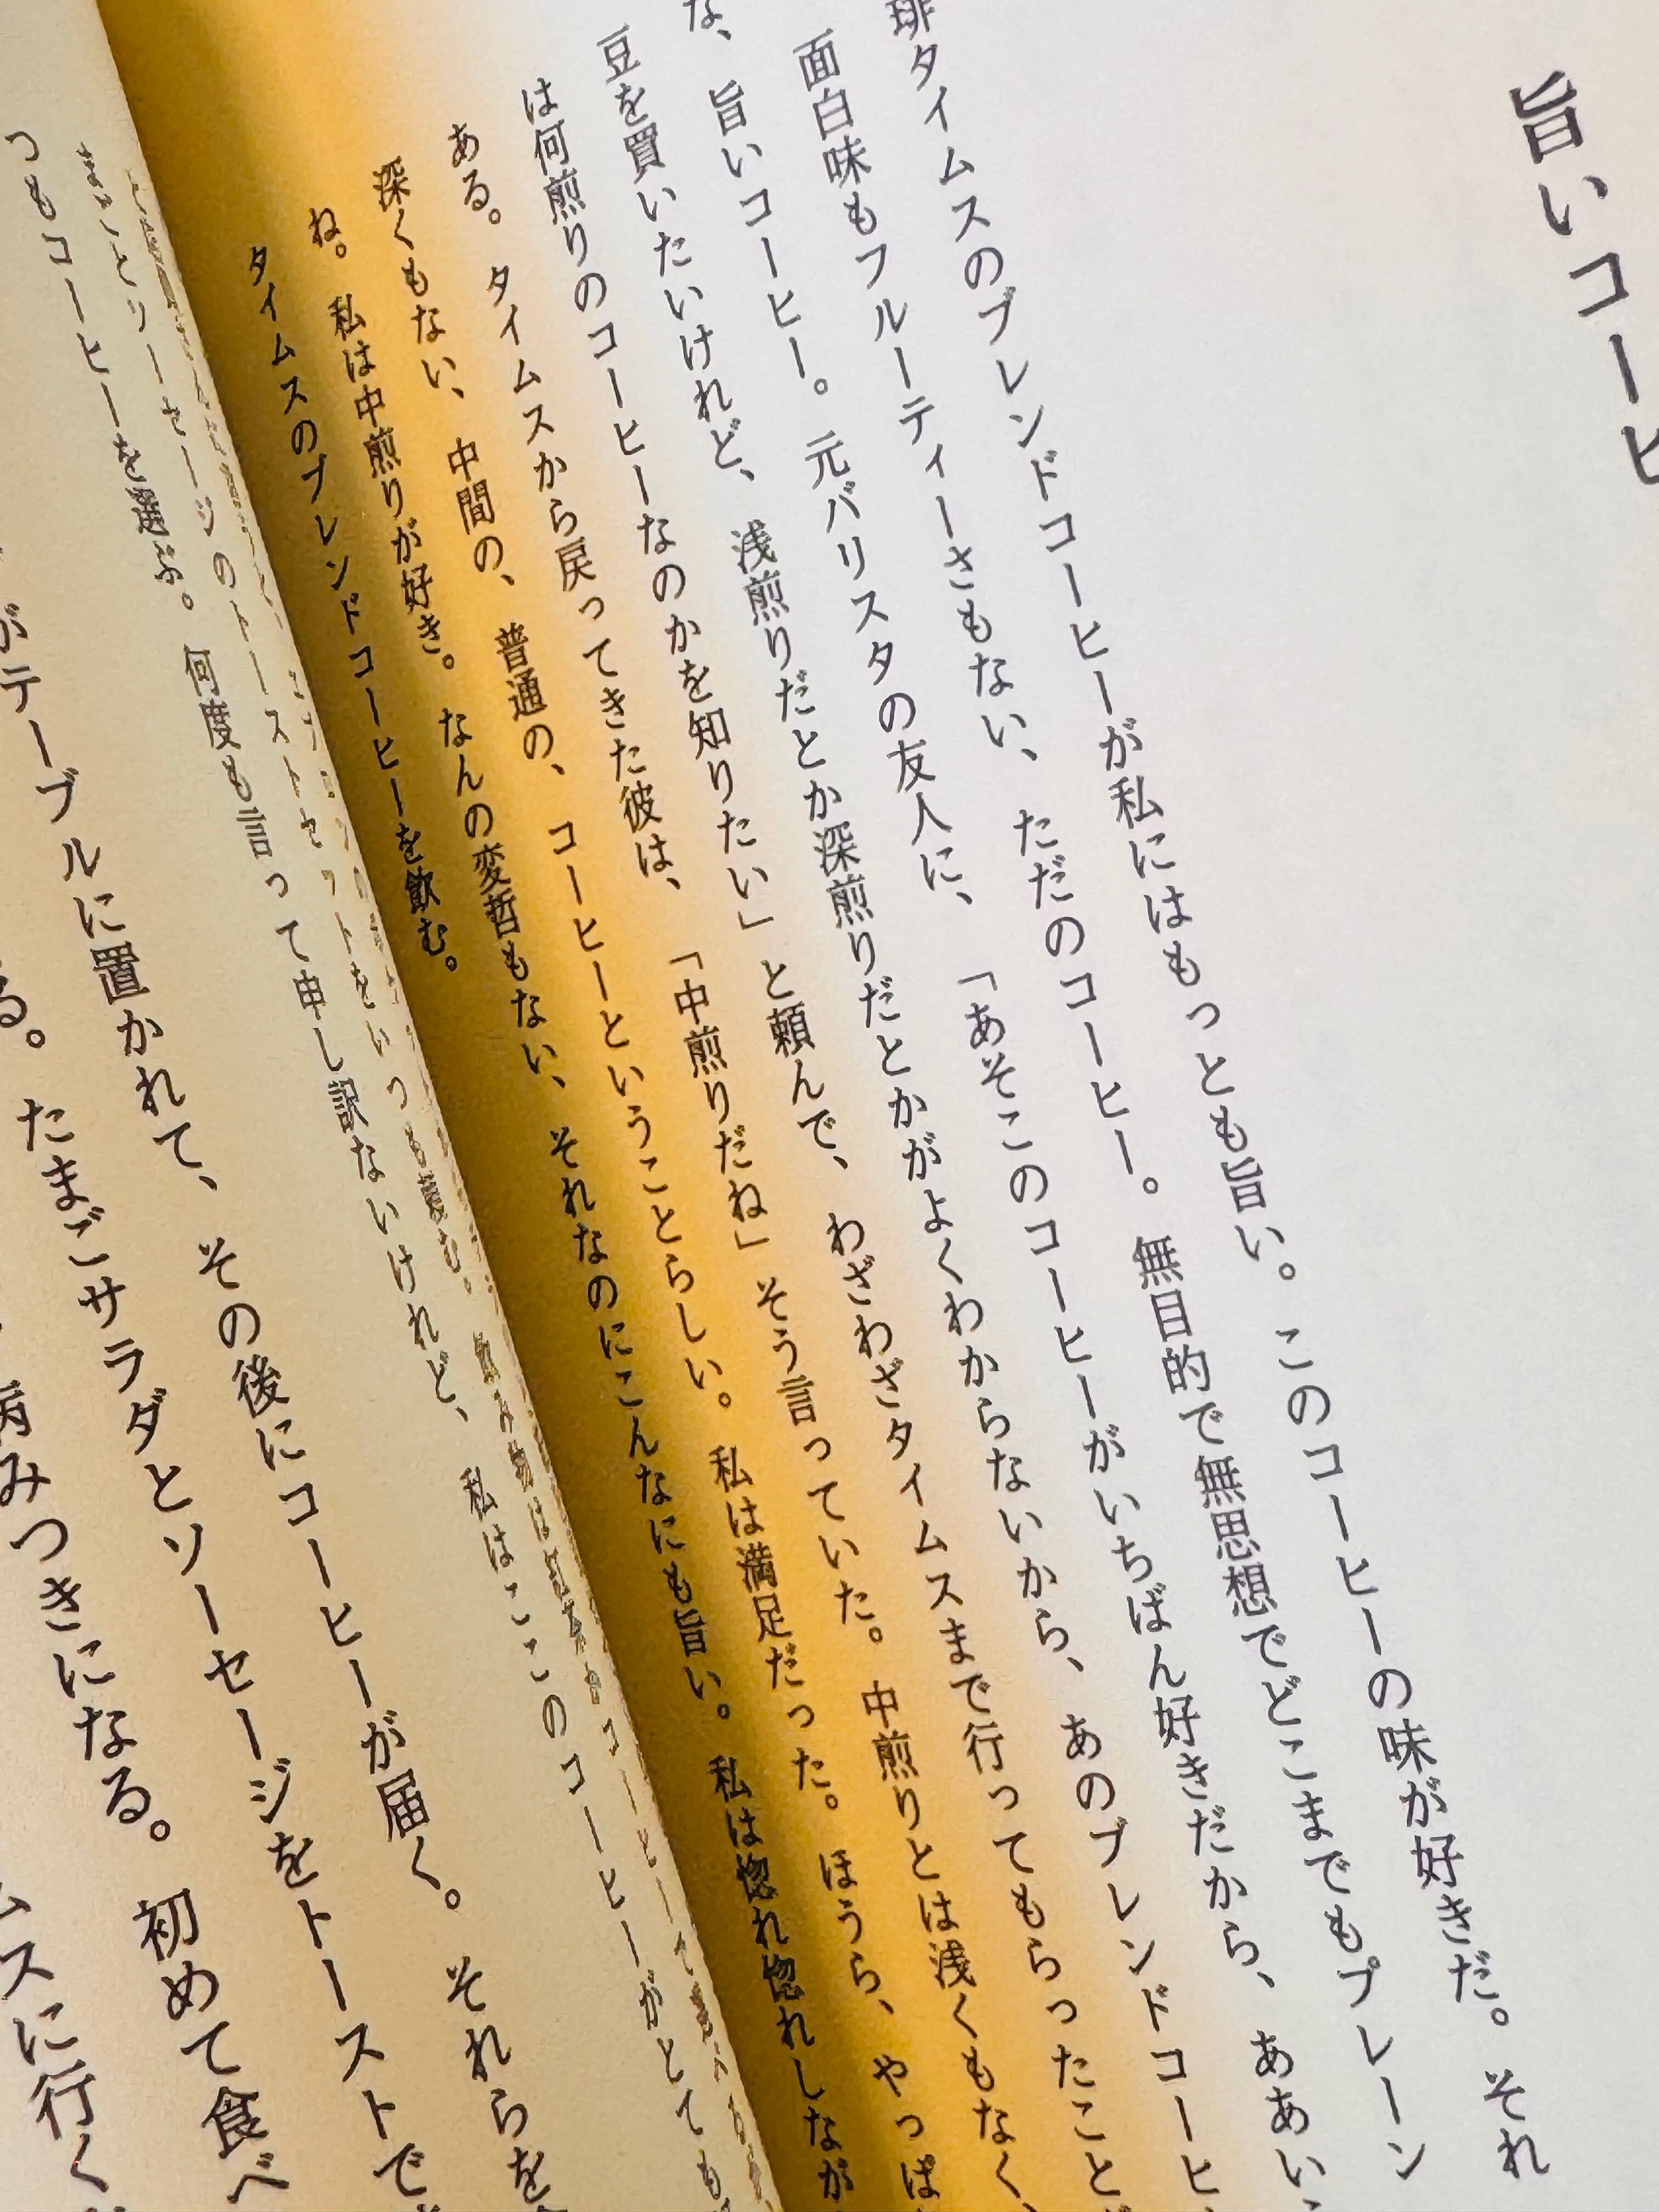 旨いコーヒ
琲タイムスのブレンドコーヒーが私にはもっとも旨い。このコーヒーの味が好きだ。それ
面白味もフルーティーさもない、ただのコーヒー。無目的で無思想でどこまでもプレーン
な、旨いコーヒー。元バリスタの友人に、「あそこのコーヒーがいちばん好きだから、ああい
豆を買いたいけれど、浅煎りだとか深煎りだとかがよくわからないから、あのブレンドコーヒ
は何煎りのコーヒーなのかを知りたい」と頼んで、わざわざタイムスまで行ってもらったこと
ある。タイムスから戻ってきた彼は、「中煎りだね」そう言っていた。中煎りとは浅くもなく、
深くもない、中間の、普通の、コーヒーということらしい。私は満足だった。ほうら、やっぱ
ね。私は中煎りが好き。なんの変哲もない、それなのにこんなにも旨い。私は惚れ惚れしなが
タイムスのブレンドコーヒーを飲む。
たまごとソーセージのトーストセット
つもコーヒーを選ぶ。何度も言って申し訳ないけれど、私はここのコーヒーがとても
がテーブルに置かれて、その後にコーヒーが届く。それらを
る。たまごサラダとソーセージをトーストで
病みつきになる。初めて食べ
ムスに行く